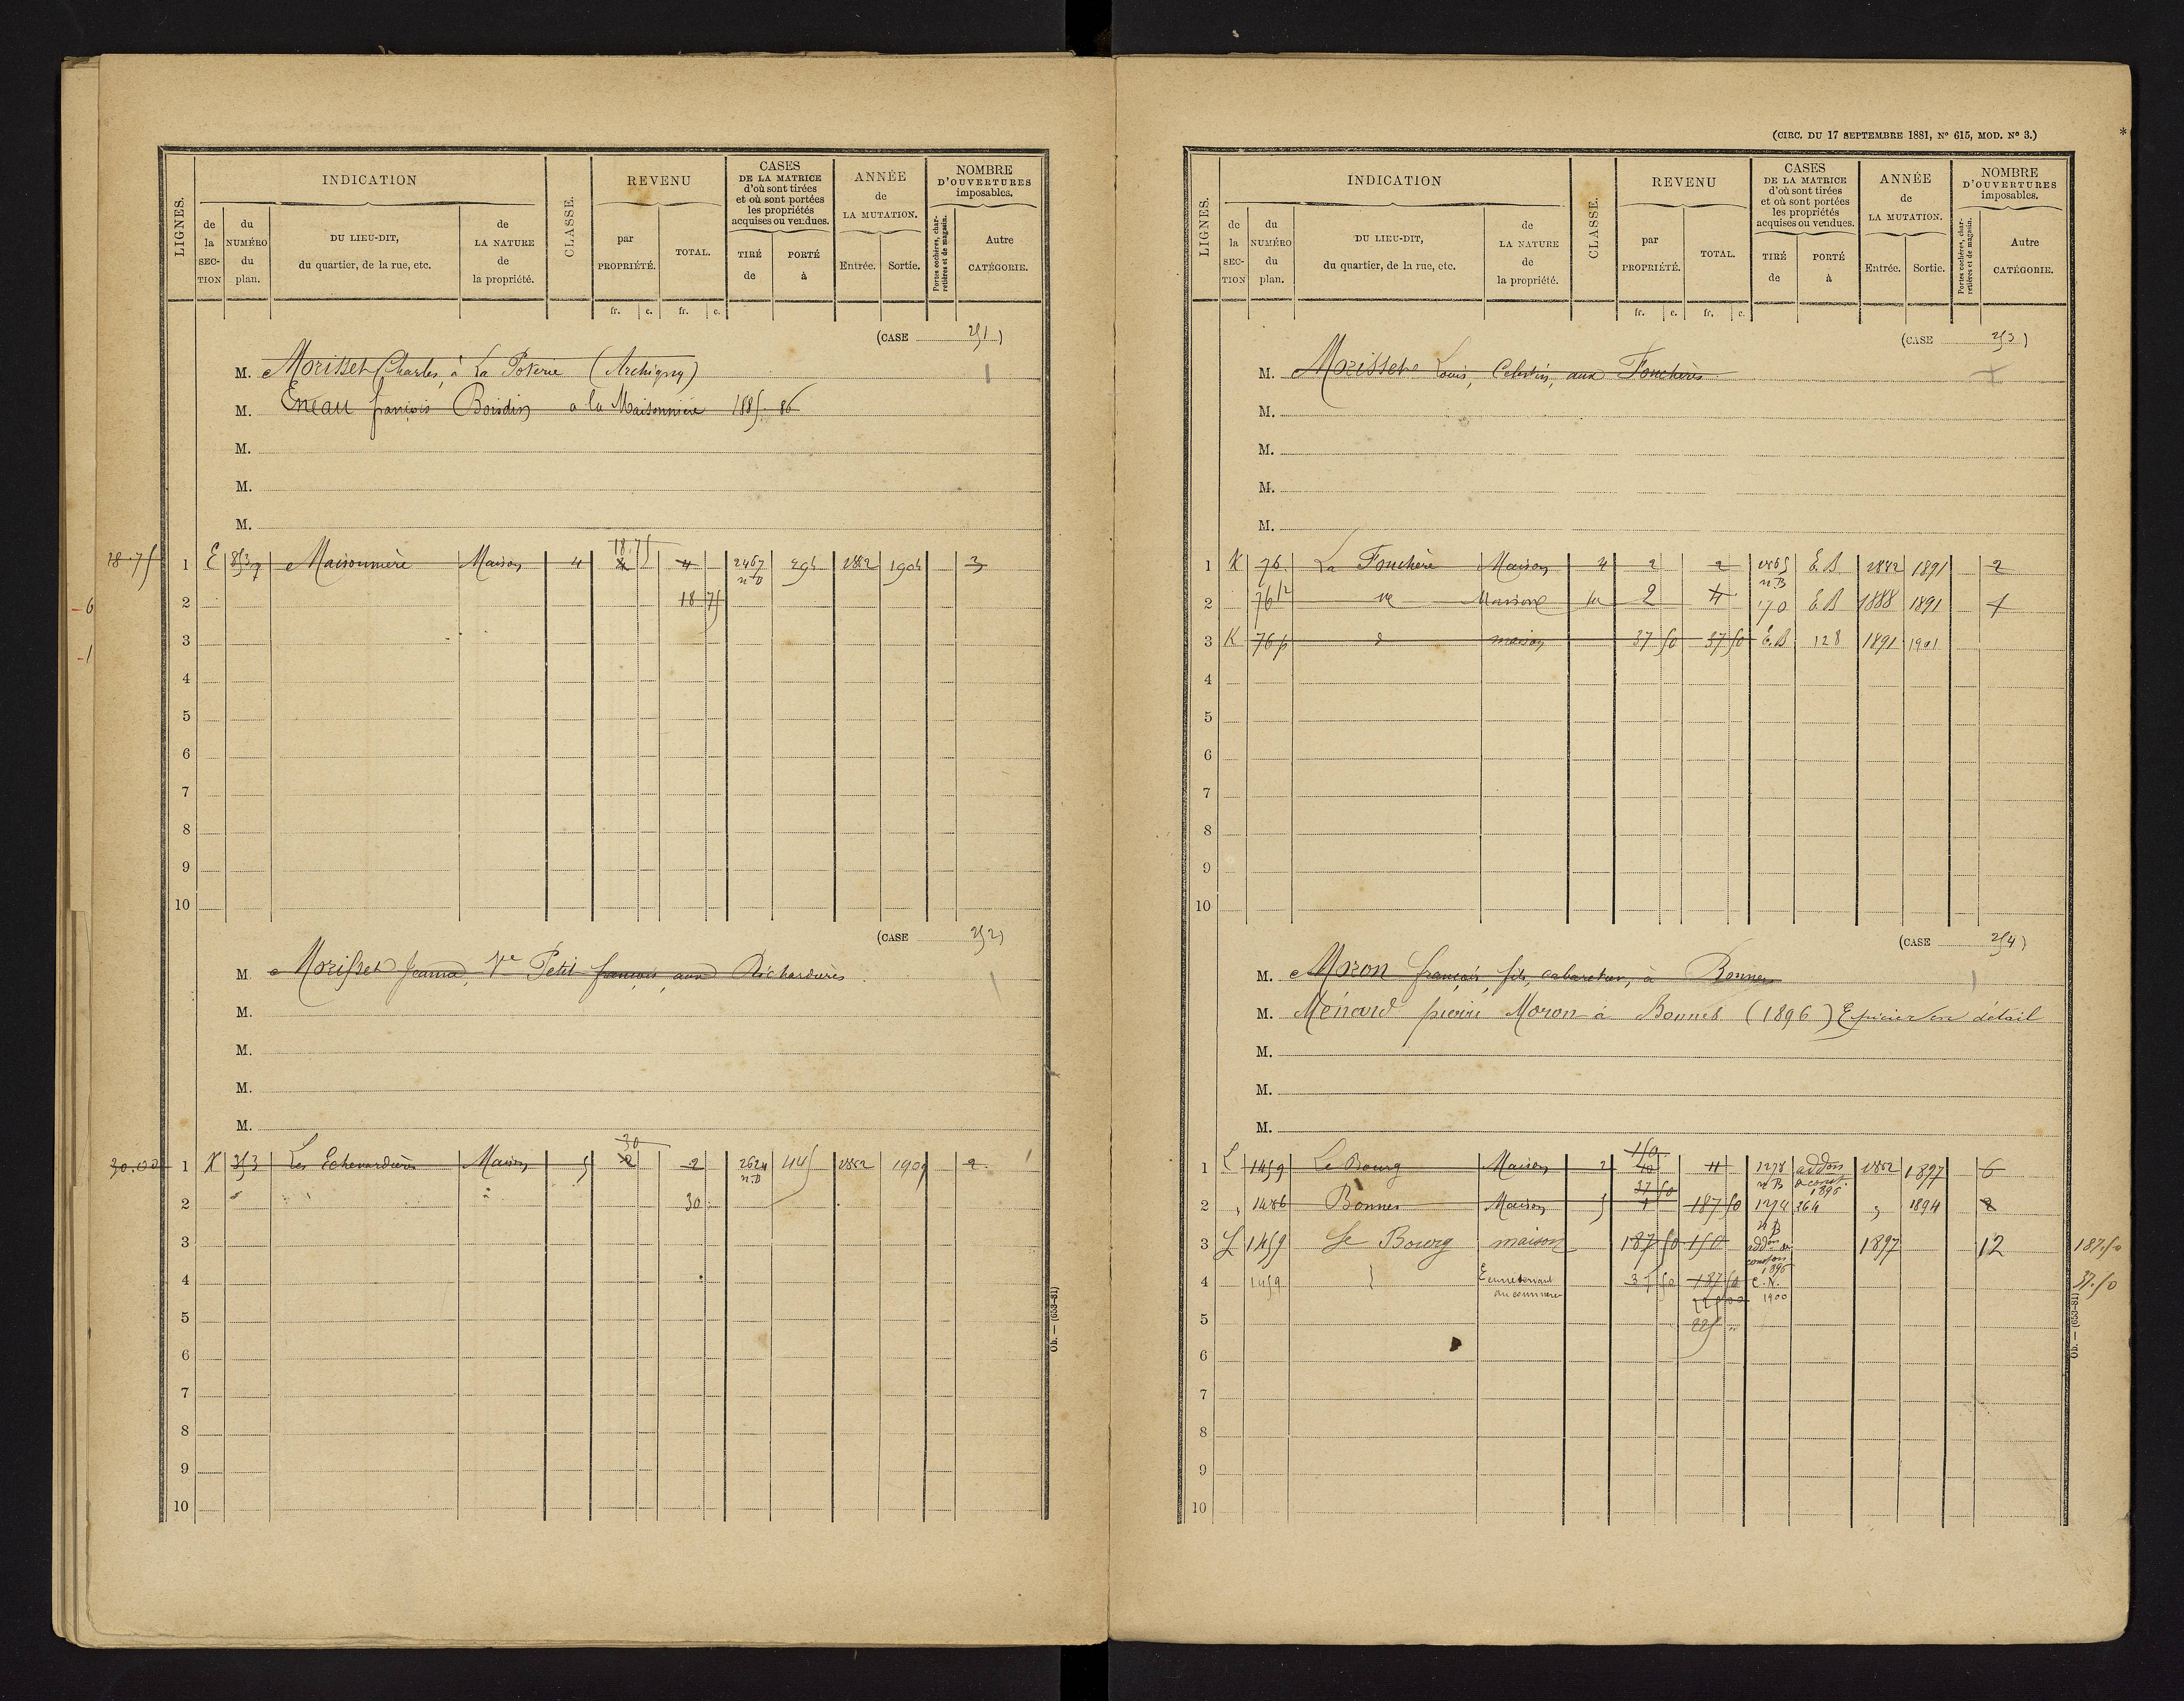 LIGNES.
INDICATION
de la SEC-TION
du NUMÉRO du plan.
DU LIEU-DIT, du quartier, de la rue, etc.
de LA NATURE de la propriété.
CLASSE.
REVENU
par PROPRIÉTÉ.
TOTAL.
fr. c. fr. c.
CASES DE LA MATRICE d'où sont tirées et où sont portées les propriétés acquises ou vendues.
TIRÉ de
PORTÉ à
ANNÉE de LA MUTATION.
Entrée. Sortie.
NOMBRE D'OUVERTURES imposables.
Portes cochères, charretières et de magasin.
Autre CATÉGORIE.
(CASE 251)
M. Morisset Charles, à La Poterie (Archigny)
M. Eneau françois Boisdin a la Maisonnière 1885. 86
M.
M.
M.
18.75
18.75
1 E 853p Maisonnière Maison 4 4 4 2467 n°D 1882 1904 3
2 18 75
- 6
3
- 1
4
5
6
7
8
9
10
(CASE 252)
M. Morisset Jeanne, Ve Petit françois, aux Richardières
M.
M.
M.
M.
30
30.00 1 K 353 Les Echevardières Maison 5 2 2 2624 n.D 445 1882 1909 2
2 30
3
4
5
6
7
8
9
10
Ob. — (653-81)
(CIRC. DU 17 SEPTEMBRE 1881, N° 615, MOD. N° 3.)
*
LIGNES.
INDICATION
de la SEC-TION
du NUMÉRO du plan.
DU LIEU-DIT, du quartier, de la rue, etc.
de LA NATURE de la propriété.
CLASSE.
REVENU
par PROPRIÉTÉ.
TOTAL.
fr. c. fr. c.
CASES DE LA MATRICE d'où sont tirées et où sont portées les propriétés acquises ou vendues.
TIRÉ de
PORTÉ à
ANNÉE de LA MUTATION.
Entrée. Sortie.
NOMBRE D'OUVERTURES imposables.
Portes cochères, charretières et de magasin.
Autre CATÉGORIE.
(CASE 253)
M. Morisset Louis, Celestin, aux Fouchères
M.
M.
M.
M.
1 K 76 La Fouchère Maison 4 2 2 E.B 1882 1891 2
2 76 Maison 2 4 E.B 1888 1891 1
3 K 76p d maison 37 50 37 50 E.B 128 1891 1901
4
5
6
7
8
9
10
(CASE 254)
M. Moron françois, fils, cabaretier, à Bonnes
M. Ménard pierre Moron à Bonnes (1896) Epicier en détail
M.
M.
M.
150
1 L 1459 Le Bourg Maison 2 40 1278 n°B addon a const. 1896 1882 1897 6
37 50
2 " 1486 Bonnes Maison 5 4 187 50 1274 264 " 1894 2
3 L 1459 Le Bourg maison 187 50 150 addon de constron 1896 1897 12 187.50
4 1459 37 50 187 50 C.N. 1900 37.50
225 00
5 225 "
6
7
8
9
10
Ob. — (653-81)